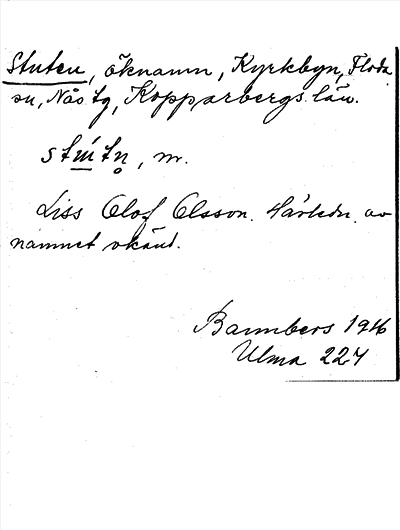 Stuten, öknamn, Kyrkbyn, Floda
sn, Nås tg, Kopparbergs län.
stút̥n, m.
Liss Olof Olsson. Härledn. av
namnet okänd.
Bannbers 1916
Ulma 224